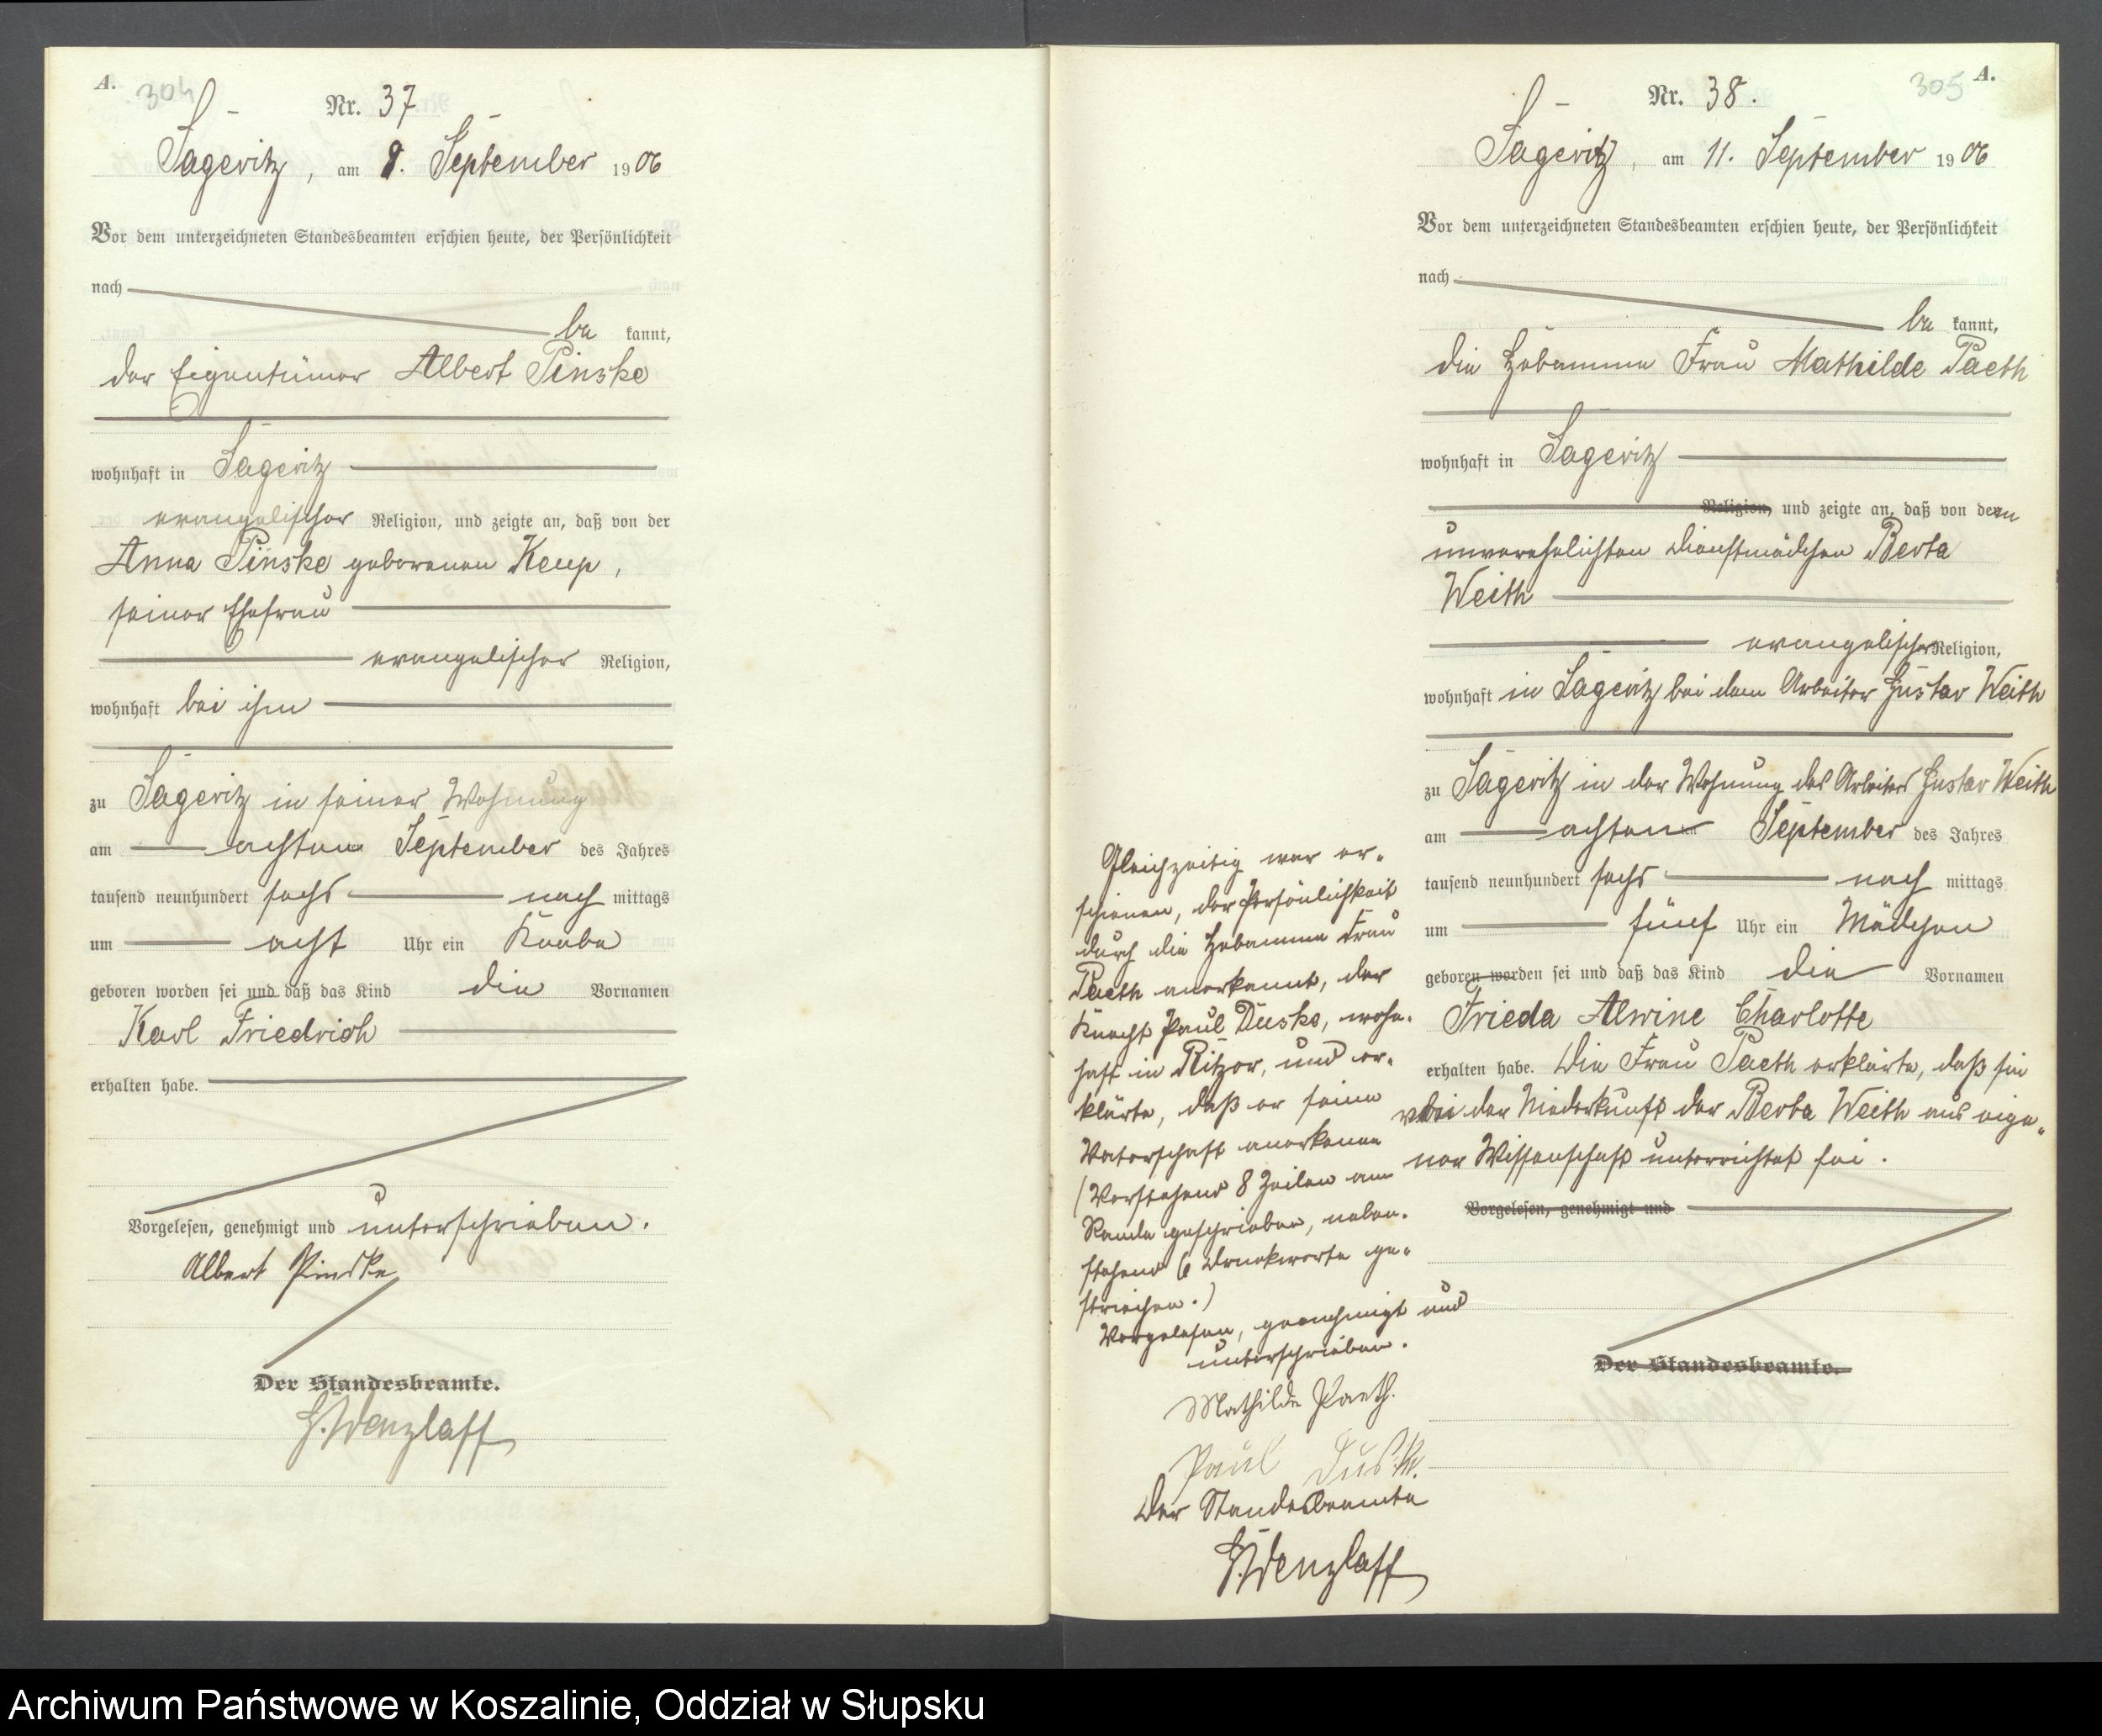 A.
304
Nr. 37
Sageritz, am 9. September 1906
Vor dem unterzeichneten Standesbeamten erschien heute, der Persönlichkeit
nach
be kannt,
der Eigentümer Albert Pinske
wohnhaft in Sageritz
evangelischer Religion, und zeigte an, daß von der
Anna Pinske geborenen Keup,
seiner Ehefrau
evangelischer Religion,
wohnhaft bei ihm
zu Sageritz in seiner Wohnung
am achten September des Jahres
tausend neunhundert sechs nach mittags
um acht Uhr ein Knabe
geboren worden sei und daß das Kind die Vornamen
Karl Friedrich
erhalten habe.
Vorgelesen, genehmigt und unterschrieben.
Albert Pinske
Der Standesbeamte.
G. Wenzlaff
A.
305
Nr. 38.
Sageritz, am 11. September 1906
Vor dem unterzeichneten Standesbeamten erschien heute, der Persönlichkeit
nach
be kannt,
die Hebamme Frau Mathilde Paeth
wohnhaft in Sageritz
Religion, und zeigte an, daß von dem
unverehelichten Dienstmädchen Berta
Weith
evangelischer Religion,
wohnhaft in Sageritz bei dem Arbeiter Gustav Weith
zu Sageritz in der Wohnung des Arbeiters Gustav Weith
am achten September des Jahres
tausend neunhundert sechs nach mittags
um fünf Uhr ein Mädchen
geboren worden sei und daß das Kind die Vornamen
Frieda Alwine Charlotte
erhalten habe. Die Frau Paeth erklärte, daß sie
bei der Niederkunft der Berta Weith aus eige-
ner Wissenschaft unterrichtet sei.
Vorgelesen, genehmigt und
Der Standesbeamte.
Gleichzeitig war er-
schienen, der Persönlichkeit
durch die Hebamme Frau
Paeth anerkannt, der
Knecht Paul Duske, wohn-
haft in Ritzow, und er-
klärte, daß er seine
Vaterschaft anerkenne
(Vorstehend 8 Zeilen am
Rande geschrieben, neben-
stehend 6 Druckworte ge-
strichen.)
Vorgelesen, genehmigt und
unterschrieben.
Mathilde Paeth.
Paul Duske
Der Standesbeamte
G. Wenzlaff
Archiwum Państwowe w Koszalinie, Oddział w Słupsku